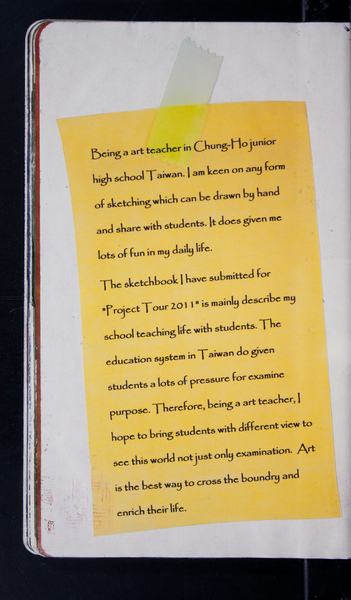 Being a art teacher in Chung-Ho junior
high school Taiwan. I am keen on any form
of sketching which can be drawn by hand
and share with students. It does given me
lots of fun in my daily life.
The sketchbook I have submitted for
"Project Tour 2011" is mainly describe my
school teaching life with students. The
education system in Taiwan do given
students a lots of pressure for examine
purpose. Therefore, being a art teacher, I
hope to bring students with different view to
see this world not just only examination. Art
is the best way to cross the boundry and
enrich their life.